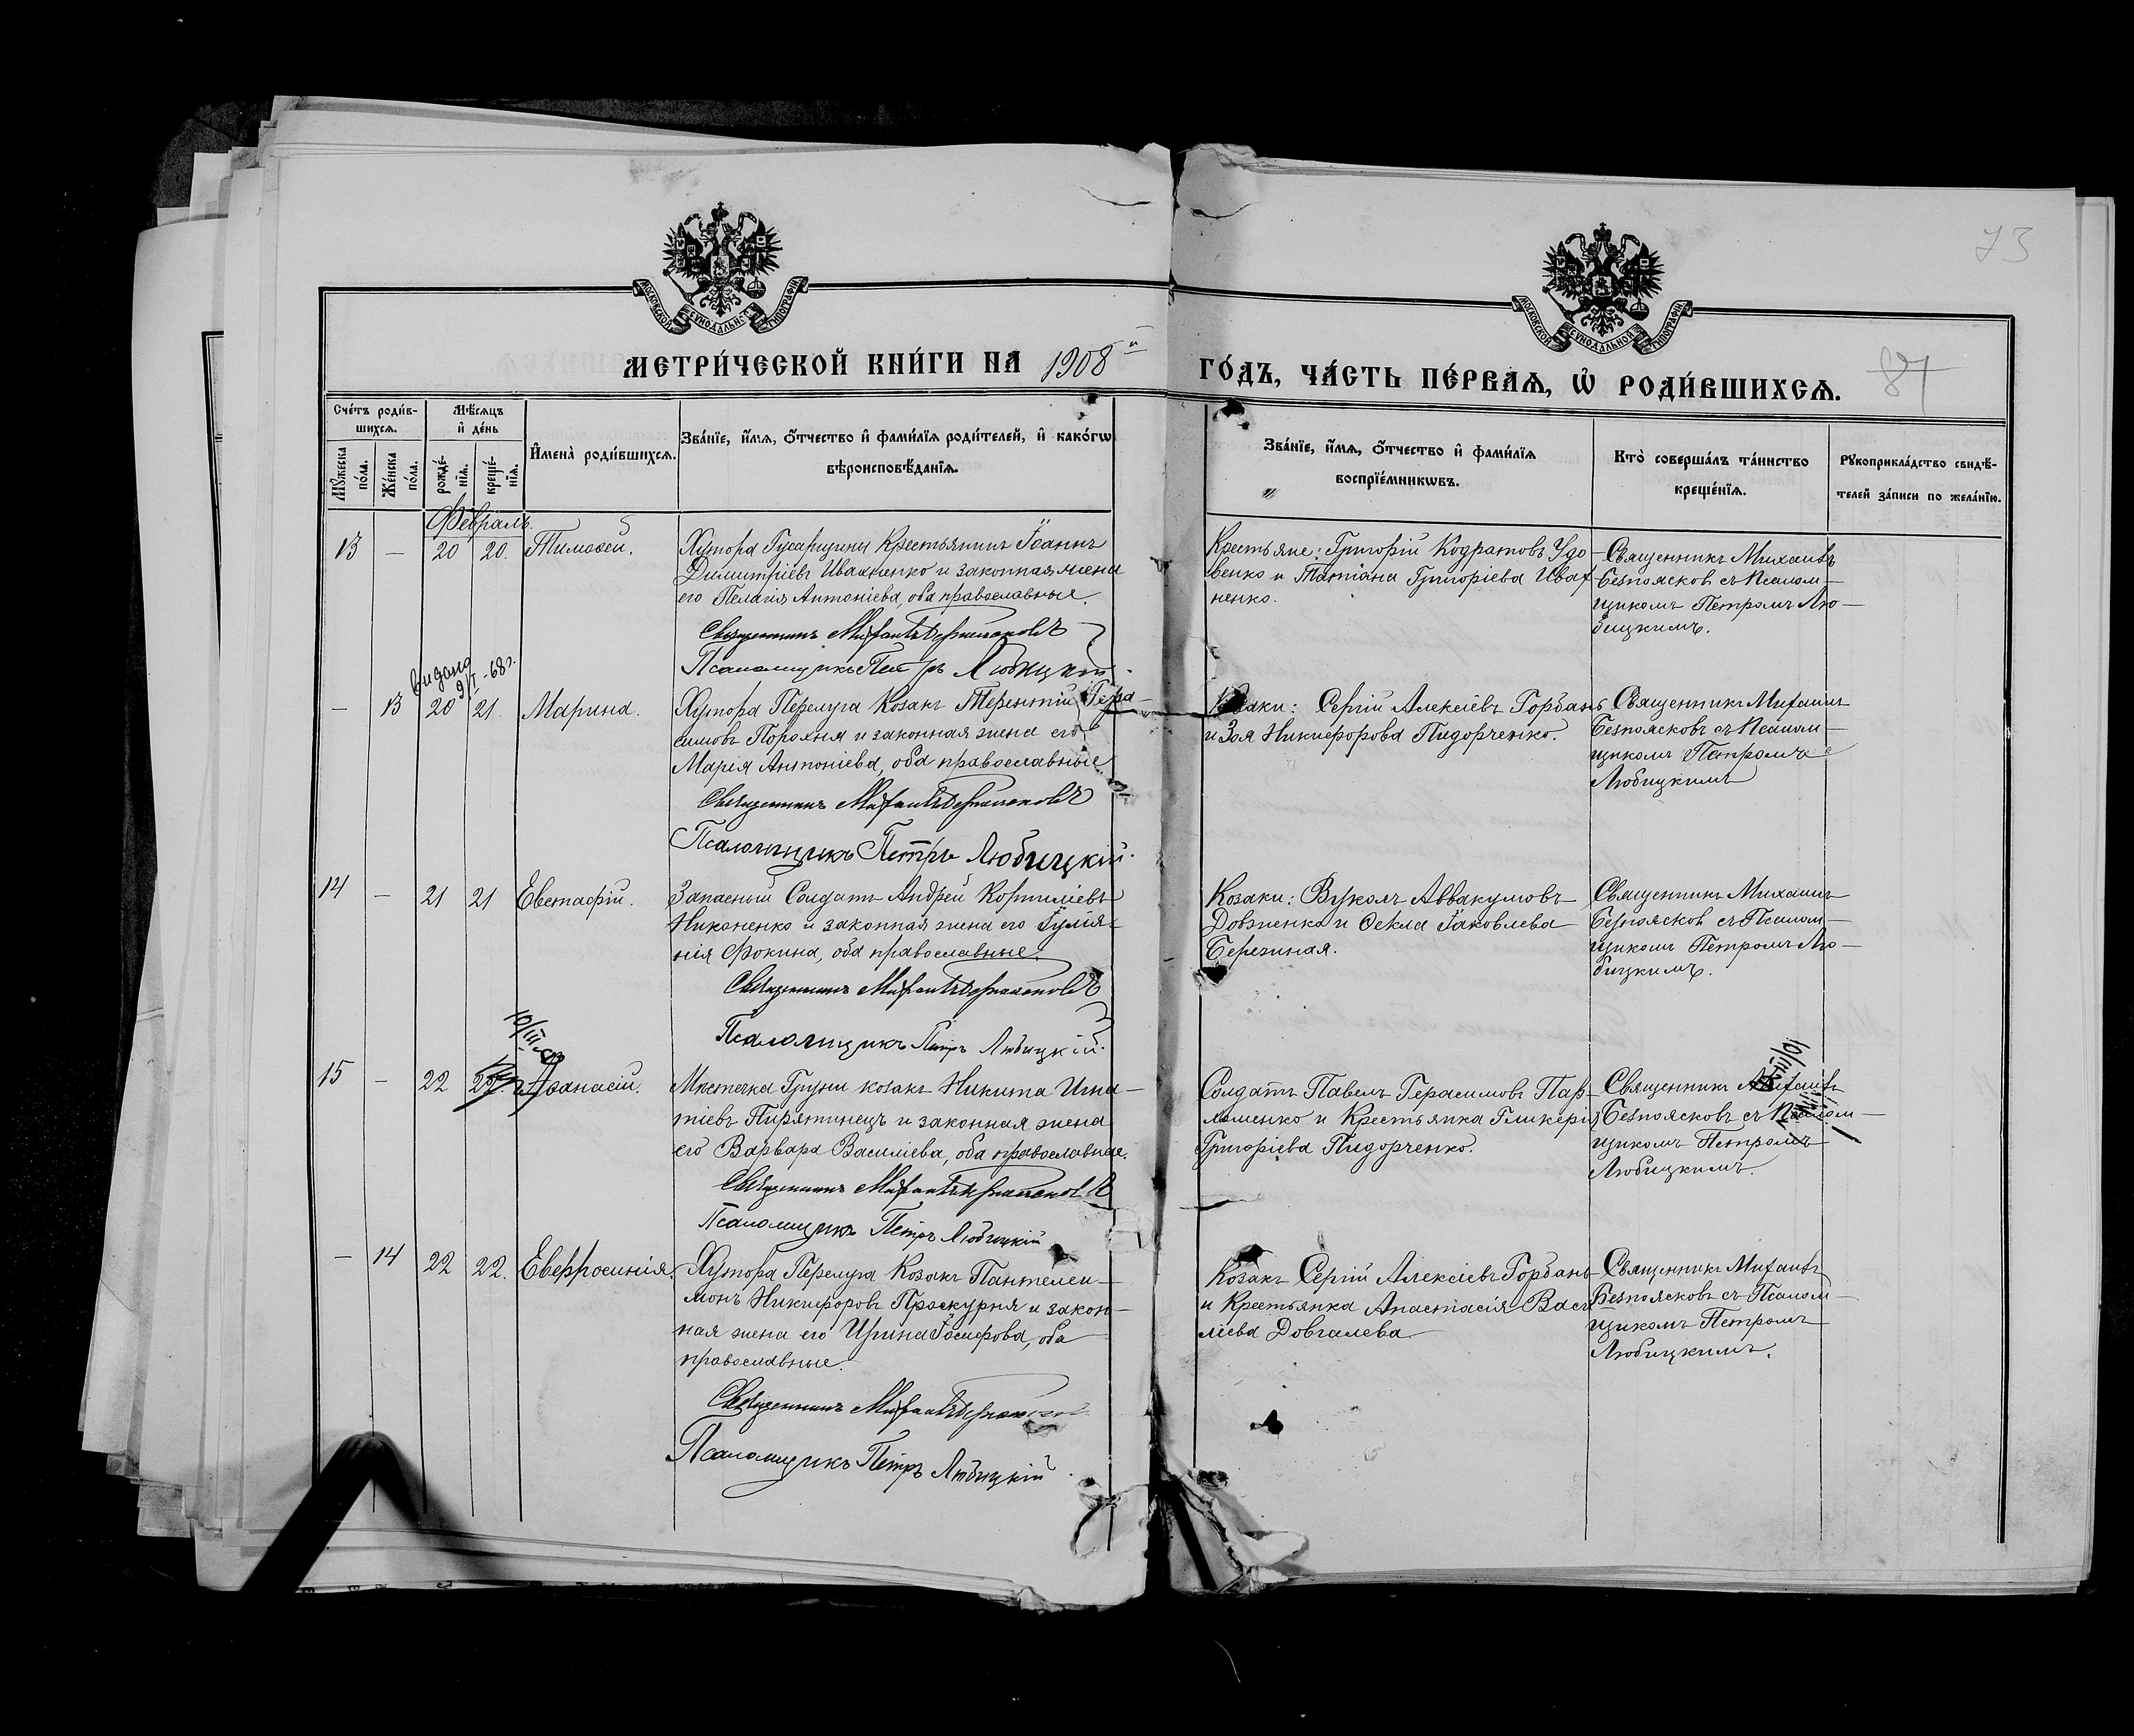 МОСКОВСКОЙ СУНОДАЛЬНОЙ ТИПОГРАФІИ
МОСКОВСКОЙ СУНОДАЛЬНОЙ ТИПОГРАФІИ
73
МЕТРИ́ЧЕСКОЙ КНИ́ГИ НА 1908й
ГО́ДЪ, ЧА́СТЬ ПЕ́РВАѦ, Ѡ҆ РОДИ́ВШИХСѦ.
87
Сче́тъ роди́в-
шихсѧ.
Мѣ́сѧцъ
и҆ де́нь
Мꙋ́жеска
по́ла.
Же́нска
по́ла.
рожде́-
нїѧ.
креще́-
нїѧ.
И҆мена̀ роди́вшихсѧ.
Зва́нїе, и҆́мѧ, ѻ҆́тчество и҆ фами́лїѧ роди́телей, и҆ како́гѡ
вѣроисповѣ́данїѧ.
Зва́нїе, и҆́мѧ, ѻ҆́тчество и҆ фами́лїѧ
воспрїе́мникѡвъ.
Кто̀ соверша́лъ та́инство
креще́нїѧ.
Рꙋкоприкла́дство свидѣ́-
телей за́писи по жела́нїю.
Февраль.
13 — 20 20. Тимоѳей.
Хутора Гусарщины Крестьянинъ Іоаннъ
Димитріевъ Ивахненко и законная жена
его Пелагія Антоніева, оба православные.
Священникъ Михаилъ Безпоясковъ
Псаломщикъ Петръ Любицкій.
Крестьяне: Григорій Кодратовъ Удо
венко и Татіана Григоріева Ивах-
ненко.
Священникъ Михаилъ
Безпоясковъ съ Псалом-
щикомъ Петромъ Лю-
бицкимъ.
видано
9/I-68г.
— 13 20 21. Марина.
Хутора Перелуга Козакъ Терентій Гера-
симовъ Порохня и законная жена его
Марія Антоніева, оба православные
Священникъ Михаилъ Безпоясковъ
Псаломщикъ Петръ Любицкій.
Козаки: Сергій Алексіевъ Горбань
и Зоя Никифорова Пидорченко.
Священникъ Михаилъ
Безпоясковъ съ Псалом-
щикомъ Петромъ
Любицкимъ
14 — 21 21 Евстафій.
Запасный Солдатъ Андрей Корниліевъ
Никоненко и законная жена его Іуліа-
нія Фокина, оба православные.
Священникъ Михаилъ Безпоясковъ
Псаломщикъ Петръ Любицкій.
Козаки: Вуколъ Аввакумовъ
Довженко и Ѳекла Іаковлева
Березиная.
Священникъ Михаилъ
Безпоясковъ съ Псалом-
щикомъ Петромъ Лю-
бицкимъ.
10/III
15 — 22 22. Аѳанасій.
Мѣстечка Груни козакъ Никита Игна-
тіевъ Пирятинецъ и законная жена
его Варвара Василіева, оба православные.
Священникъ Михаилъ Безпоясковъ
Псаломщикъ Петръ Любицкій
Солдатъ Павелъ Герасимовъ Пар-
хоменко и Крестьянка Гликерія
Григоріева Пидорченко.
Священникъ Михаилъ
Безпоясковъ съ Псалом-
щикомъ Петромъ
Любицкимъ.
— 14 22 22. Евфросинія.
Хутора Перелуга Козакъ Пантелеи-
монъ Никифоровъ Проскурня и закон-
ная жена его Ирина Іосифова, оба
православные.
Священникъ Михаилъ Безпоясковъ
Псаломщикъ Петръ Любицкій.
Козакъ Сергій Алексіевъ Горбань
и Крестьянка Анастасія Васи
ліева Довгалева.
Священникъ Михаилъ
Безпоясковъ съ Псалом-
щикомъ Петромъ
Любицкимъ.